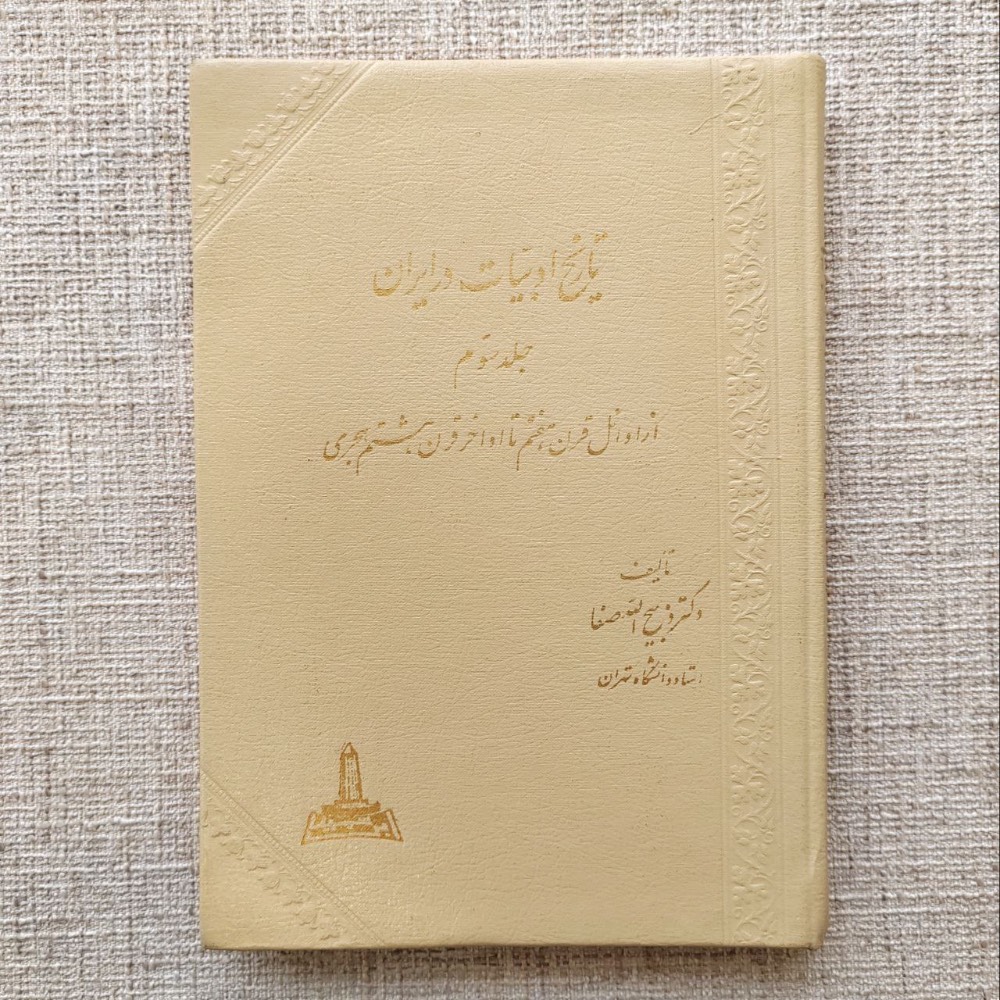 تاریخ ادبیّات در ایران
جلد سوّم
از اوائل قرن هفتم تا اواخر قرن هشتم هجری
تألیف
دکتر ذبیح اللّه صفا
استاد دانشگاه تهران